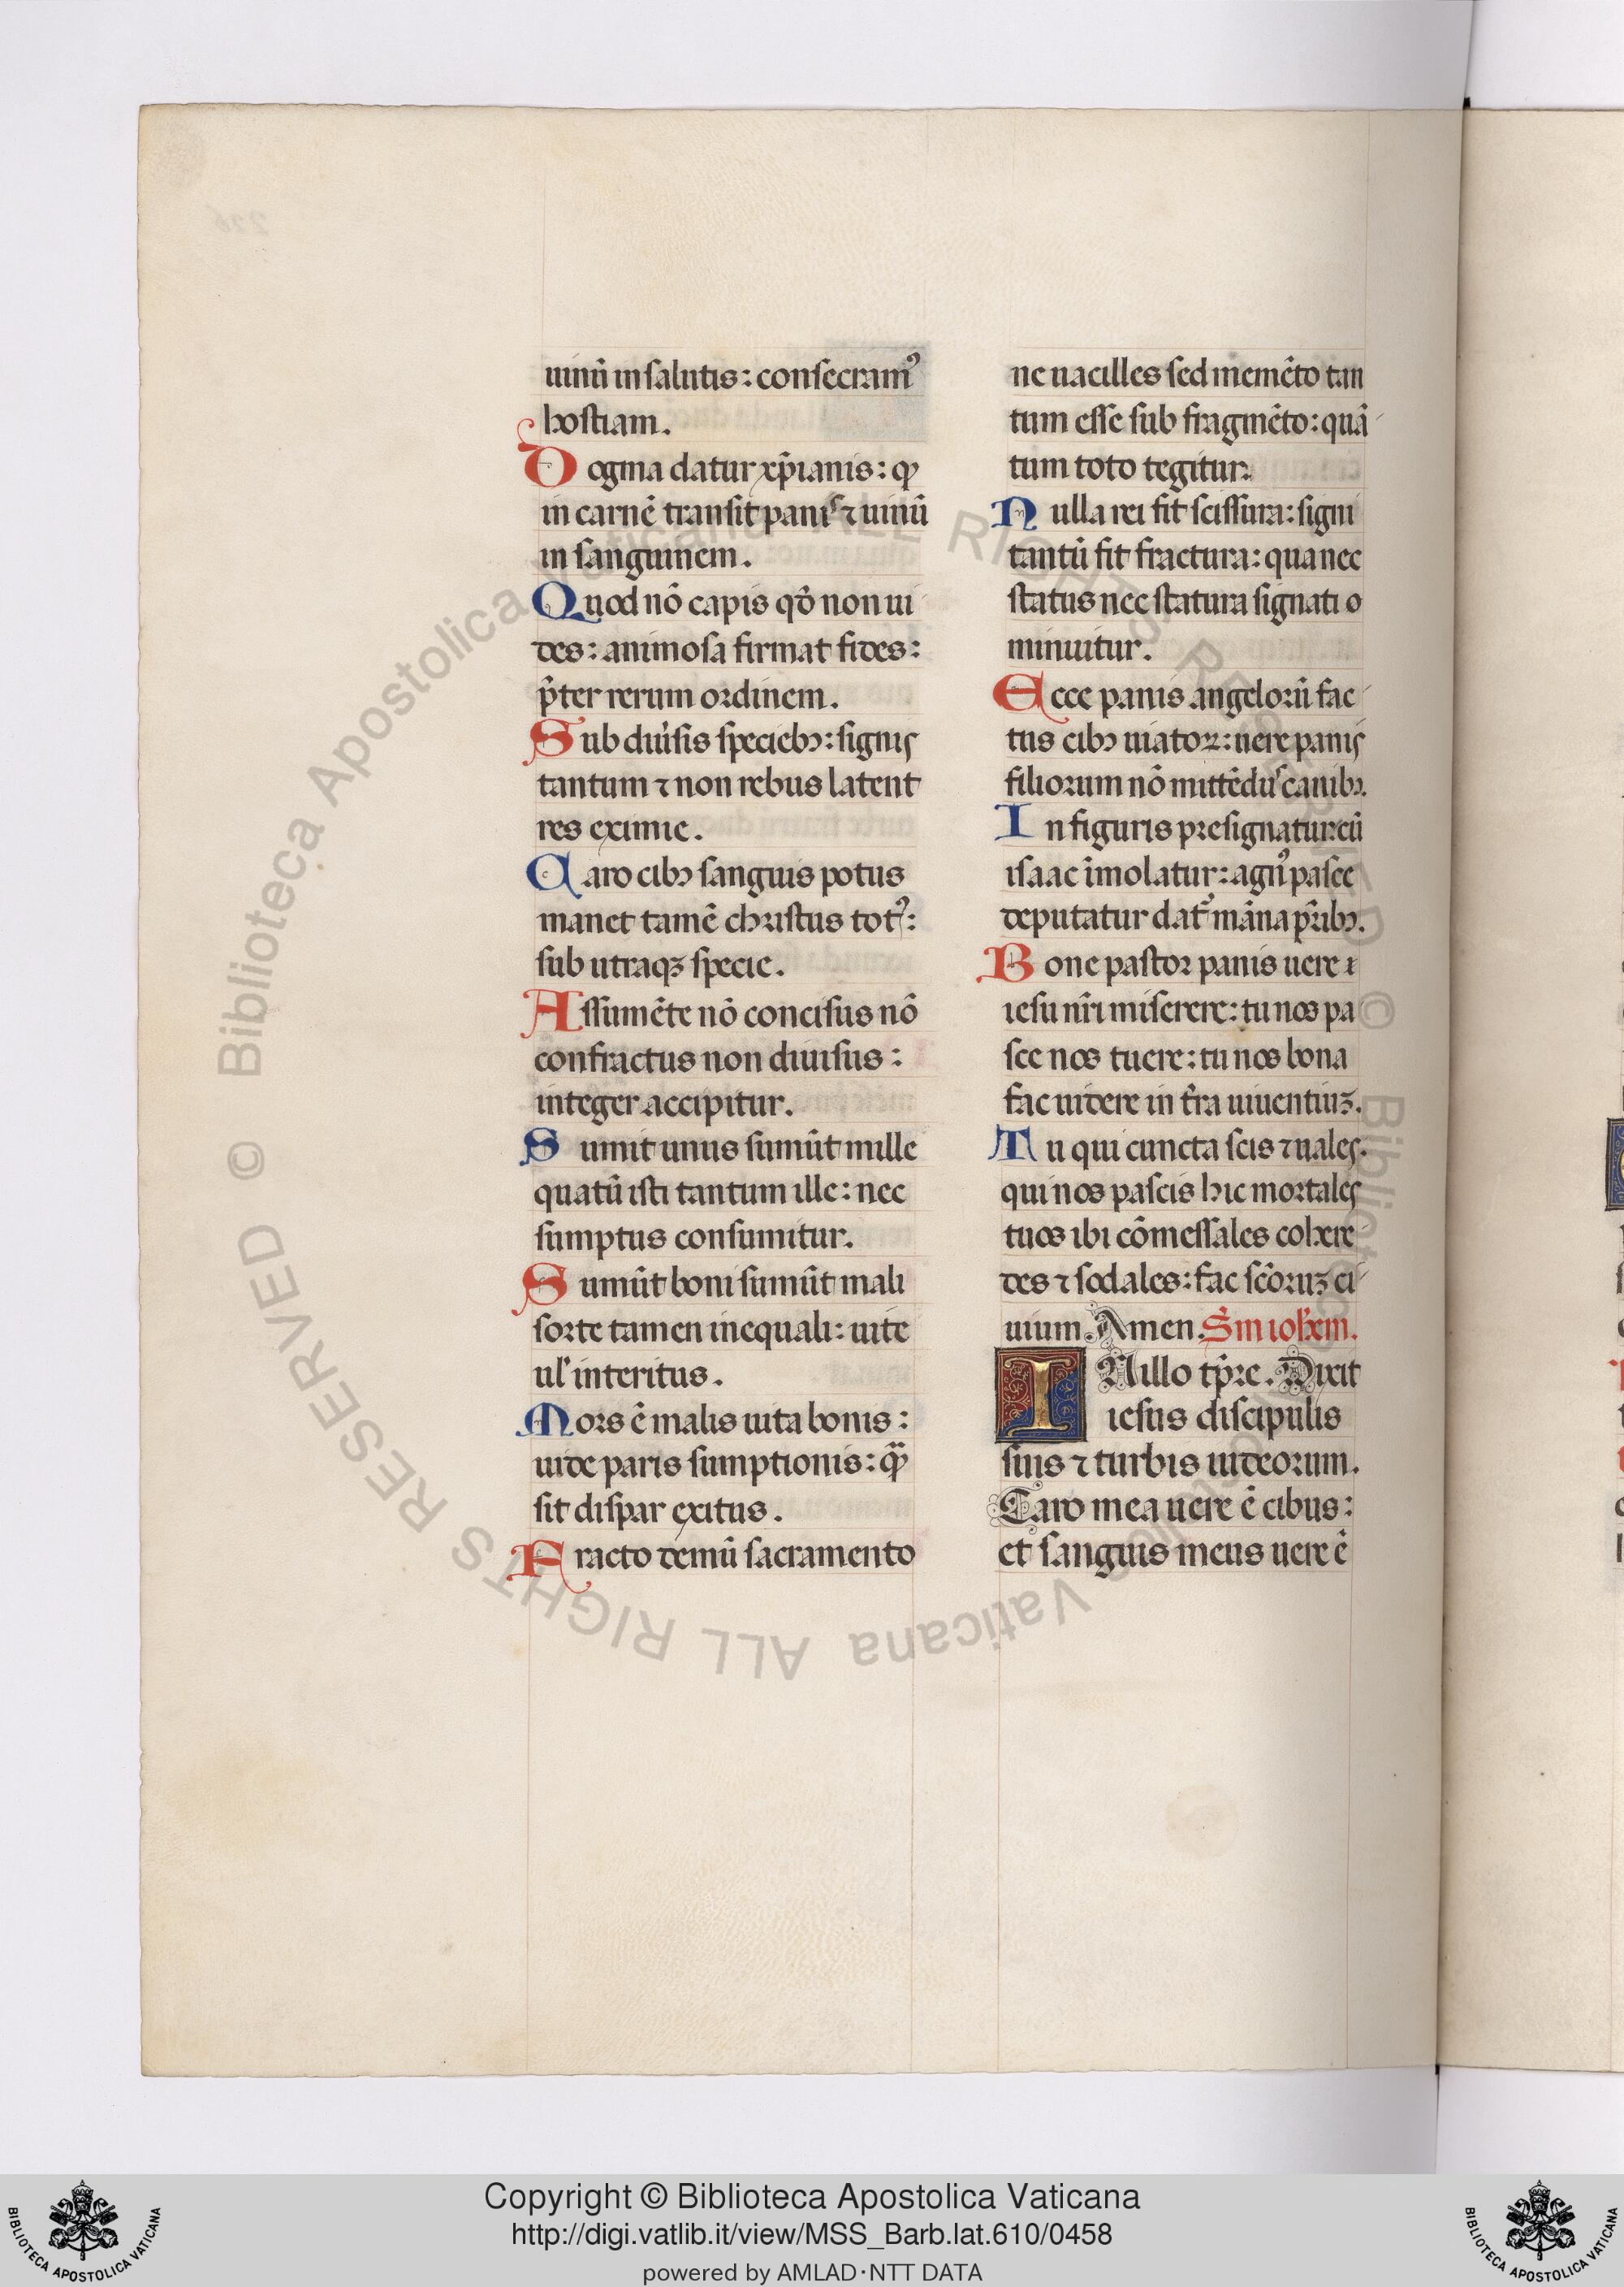 uinũ in salutis: consecramꝰ
hostiam.
Dogma datur xp̃ianis: ꝙ
in carnẽ transit panis ⁊ uinũ
in sanguinem.
Quod nõ capis qõ non ui
des: animosa firmat fides:
p̃ter rerum ordinem.
Sub diu̾sis speciebꝫ: signis
tantum ⁊ non rebus latent
res eximie.
Caro cibꝫ sanguis potus
manet tamẽ christus totꝰ:
sub utraqꝫ specie.
Assumẽte nõ concisus nõ
confractus non diuisus:
integer accipitur.
Sumit unus sumũt mille
quatũ isti tantum ille: nec
sumptus consumitur.
Sumũt boni sumũt mali
sorte tamen inequali: uite
ul̾ interitus.
Mors ẽ malis uita bonis:
uide paris sumptionis: q̃ꝫ
sit dispar exitus.
Fracto demũ sacramento
ne uacilles sed memẽto tan
tum esse sub fragmẽto: quã
tum toto tegitur.
Nulla rei fit scissura: signi
tantũ fit fractura: qua nec
status nec statura signati o
minuitur.
Ecce panis angelorũ fac
tus cibꝫ uiatoꝝ: uere panis
filiorum nõ mittẽdus canibꝫ.
In figuris presignatur: cũ
isaac ĩmolatur: agnꝰ pasce
deputatur dat᷑ mãna pr̃ibꝫ.
Bone pastor panis uere
iesu nr̃i miserere: tu nos pa
sce nos tuere: tu nos bona
fac uidere in tr̃a uiuentiuꝫ.
Tu qui cuncta scis ⁊ uales.
qui nos pascis hic mortales
tuos ibi cõmessales cohere
des ⁊ sodales: fac sc̃oruꝫ ci
uium. Amen. S̃m ioh̃em.
IN illo tp̃re. Dixit
iesus discipulis
suis ⁊ turbis iudeorum.
Caro mea uere ẽ cibus:
et sanguis meus uere ẽ
© Biblioteca Apostolica Vaticana ALL RIGHTS RESERVED © Biblioteca Apostolica Vaticana ALL RIGHTS RESERVED
Copyright © Biblioteca Apostolica Vaticana
http://digi.vatlib.it/view/MSS_Barb.lat.610/0458
powered by AMLAD·NTT DATA
BIBLIOTECA APOSTOLICA VATICANA
BIBLIOTECA APOSTOLICA VATICANA